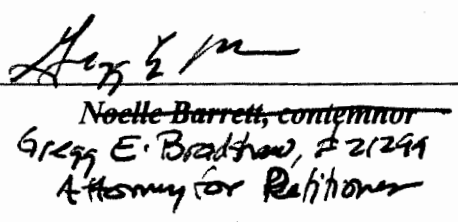 Noelle Barrett, contemnor
Gregg E. Bradshaw, #21299
Attorney for Petitioner